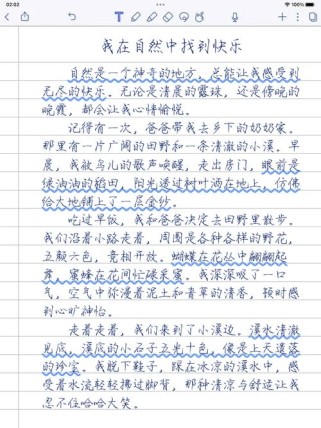 02:02
100%
T
我在自然中找到快乐
自然是一个神奇的地方，总能让我感受到
无尽的快乐。无论是清晨的露珠，还是傍晚的
晚霞，都会让我心情愉悦。
记得有一次，爸爸带我去乡下的奶奶家。
那里有一片广阔的田野和一条清澈的小溪。早
晨，我被鸟儿的歌声唤醒，走出房门，眼前是
绿油油的稻田，阳光透过树叶洒在地上，仿佛
给大地铺上了一层金纱。
吃过早饭，我和爸爸决定去田野里散步。
我们沿着小路走着，周围是各种各样的野花，
五颜六色，竞相开放。蝴蝶在花丛中翩翩起
舞，蜜蜂在花间忙碌采蜜。我深深吸了一口
气，空气中弥漫着泥土和青草的清香，顿时感
到心旷神怡。
走着走着，我们来到了小溪边。溪水清澈
见底，溪底的小石子五光十色，像是上天遗落
的珍宝。我脱下鞋子，踩在冰凉的溪水中，感
受着水流轻轻拂过脚背，那种清凉与舒适让我
忍不住哈哈大笑。